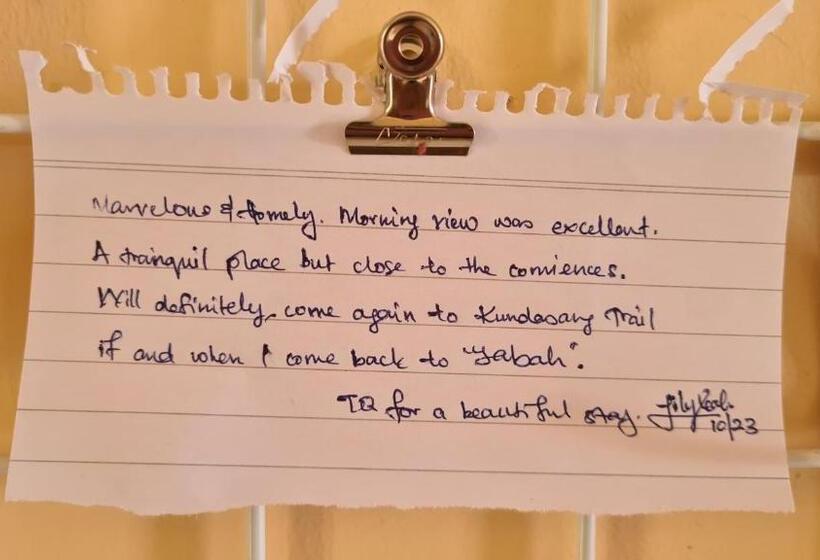 Marvelous & Homely. Morning view was excellent.
A tranquil place but close to the conviences.
Will definitely come again to Kundasang Trail
if and when I come back to "Sabah".
TQ for a beautiful stay.
10/23